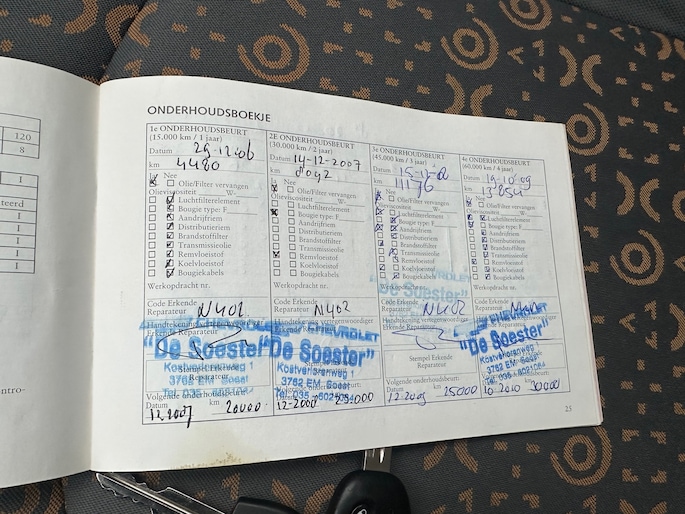 120
8
1
teerd
1
1
1
1
1
ntro-
ONDERHOUDSBOEKJE
1e ONDERHOUDSBEURT
(15.000 km / 1 jaar)
Datum 29-12-06
km 4480
Ja Nee
Olie/Filter vervangen
Olieviscositeit W-
Luchtfilterelement
Bougie type: F
Aandrijfriem
Distributieriem
Brandstoffilter
Transmissieolie
Remvloeistof
Koelvloeistof
Bougiekabels
Werkopdracht nr.
Code Erkende
Reparateur N402
Handtekening
Erkende Reparateur
CHEVROLET
"De Soester"
Kostverlorenweg 1
3762 EM Soest
Tel. 035
Stempel Erkende
Reparateur
Volgende onderhoudsbeurt:
Datum km
12 2007 20000
2E ONDERHOUDSBEURT
(30.000 km / 2 jaar)
Datum 14-12-2007
km
Ja Nee
Olie/Filter vervangen
Olieviscositeit W-
Luchtfilterelement
Bougie type: F
Aandrijfriem
Distributieriem
Brandstoffilter
Transmissieolie
Remvloeistof
Koelvloeistof
Bougiekabels
Werkopdracht nr.
Code Erkende
Reparateur N402
CHEVROLET
"De Soester"
Kostverlorenweg 1
3762 EM Soest
Tel. 035 - 6021084
Volgende onderhoudsbeurt:
Datum km
3e ONDERHOUDSBEURT
(45.000 km / 3 jaar)
Datum
km 11176
Ja Nee
Olie/Filter vervangen
Olieviscositeit W-
Luchtfilterelement
Bougie type: F
Aandrijfriem
Distributieriem
Brandstoffilter
Transmissieolie
Remvloeistof
Koelvloeistof
Bougiekabels
Werkopdracht nr.
"De Soester"
Code Erkende
Reparateur N402
Erkende Reparateur
Stempel Erkende
Reparateur
Volgende onderhoudsbeurt:
Datum km
25000
4e ONDERHOUDSBEURT
(60.000 km / 4 jaar)
Datum 19-10-09
km
Ja Nee
Olie/Filter vervangen
Olieviscositeit W-
Luchtfilterelement
Bougie type: F
Aandrijfriem
Distributieriem
Brandstoffilter
Transmissieolie
Remvloeistof
Koelvloeistof
Bougiekabels
Werkopdracht nr.
Code Erkende
Reparateur
CHEVROLET
"De Soester"
Kostverlorenweg 1
3762 EM Soest
Tel. 035 - 6021084
Volgende onderhoudsbeurt:
Datum km
10 2010 30000
25